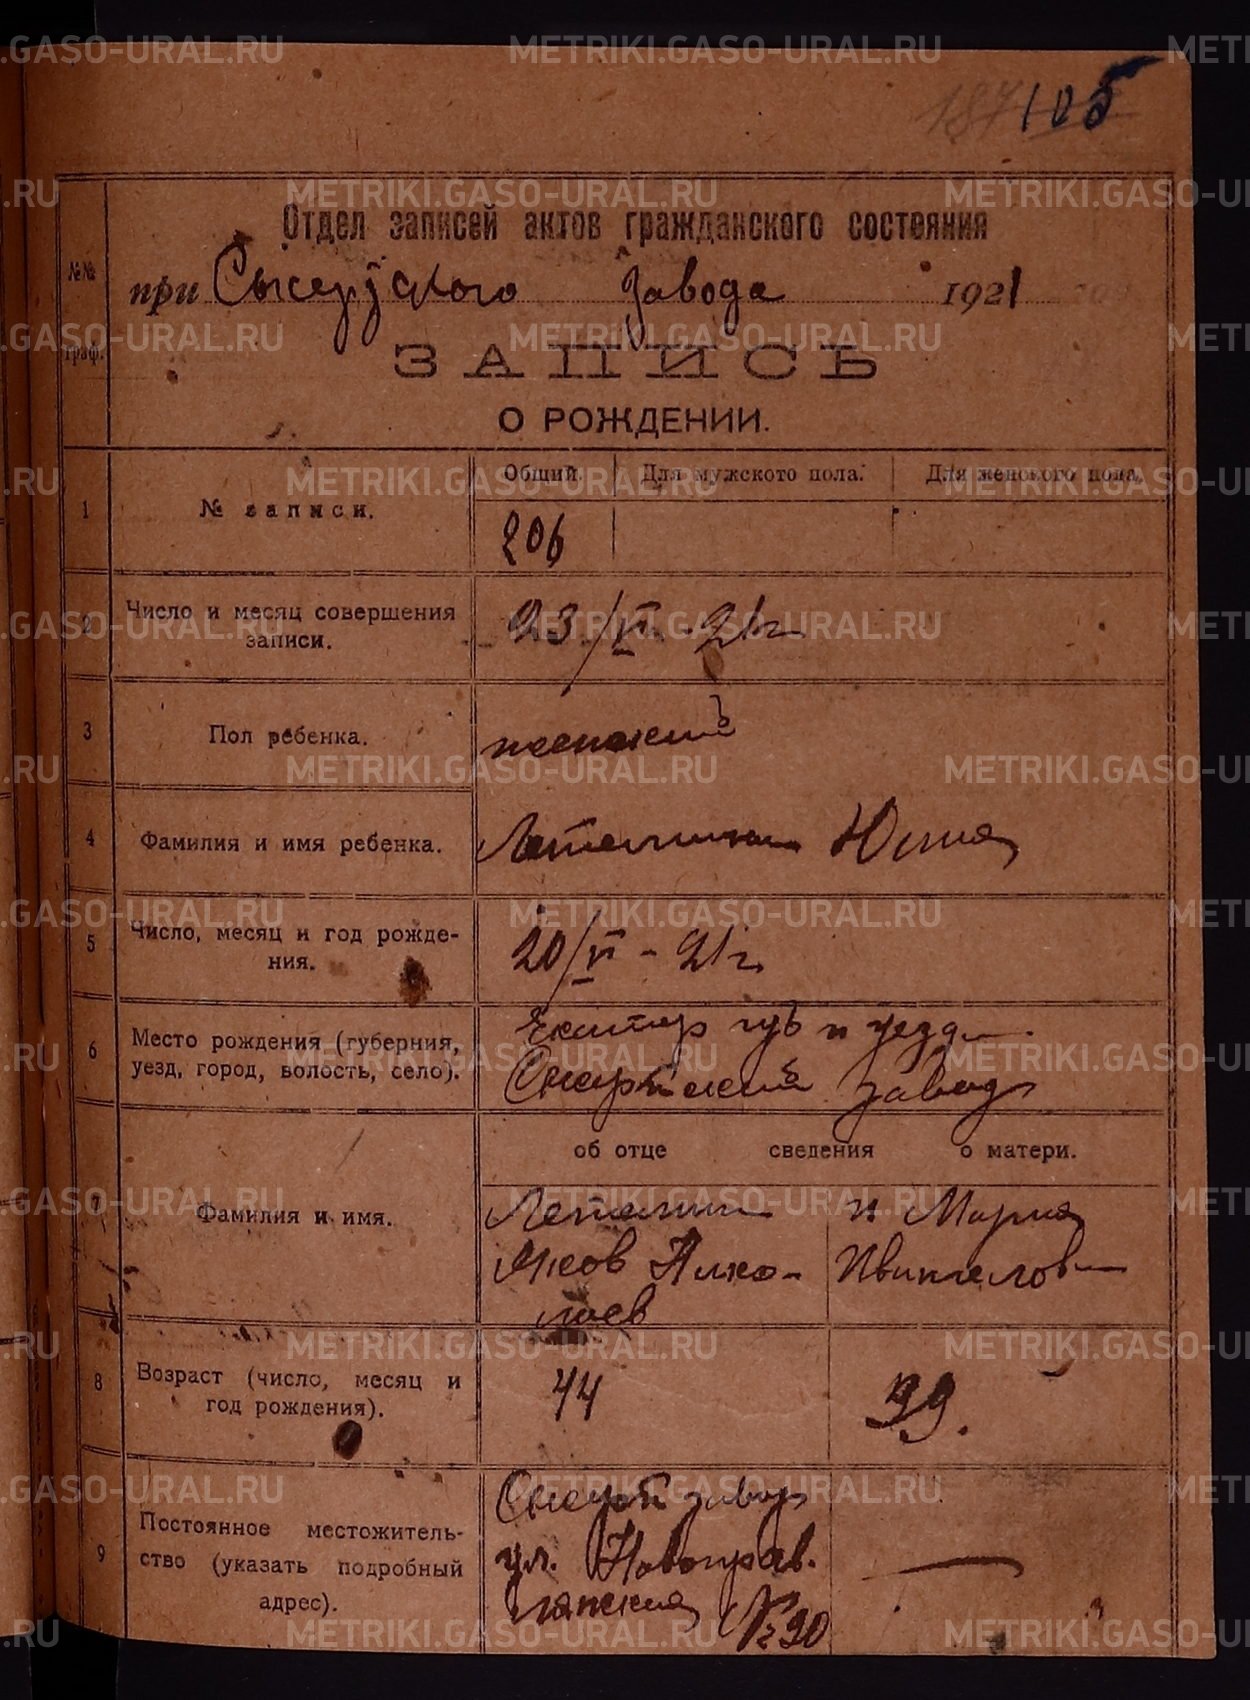 METRIKI.GASO-URAL.RU
105
Отдел записей актов гражданского состояния
№№ граф.
при Сысертского завода 1921
ЗАПИСЬ
О РОЖДЕНИИ.
Общий. Для мужского пола. Для женского пола.
1 № записи. 206
2 Число и месяц совершения записи. 23/VI - 21 г
3 Пол ребенка. женский
4 Фамилия и имя ребенка.
5 Число, месяц и год рождения. 20/VI - 21 г.
6 Место рождения (губерния, уезд, город, волость, село).
Екатер губ и уезд
Сысертский завод
об отце сведения о матери.
7 Фамилия и имя.
и Мария
Яков Нико-
лаев
8 Возраст (число, месяц и год рождения). 44 39.
9 Постоянное местожительство (указать подробный адрес).
Сысерт завод
ул.
№